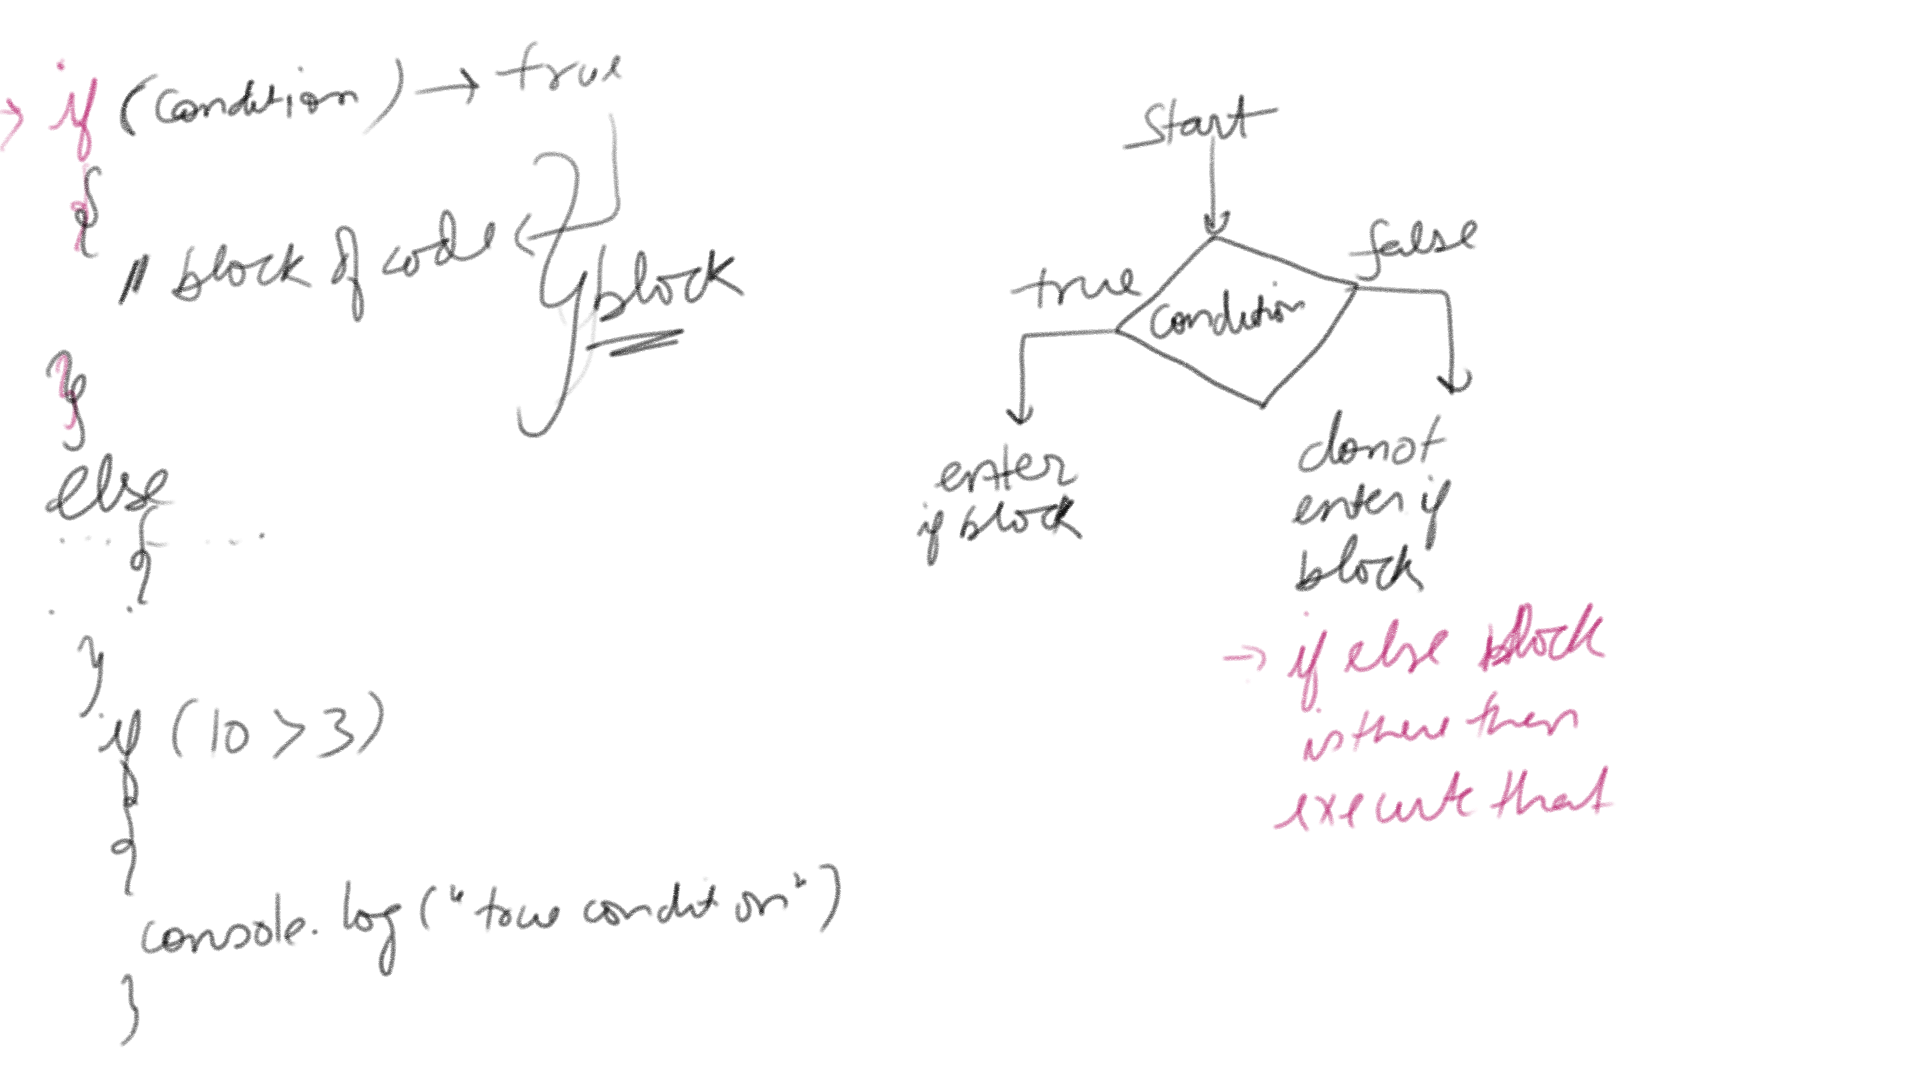 if (condition) → true
{
// block of code
} block
}
else
{
}
if (10 > 3)
{
console.log("true condition")
}
start
true
false
condition
enter
if block
donot
enter if
block
→ if else block
is there then
execute that